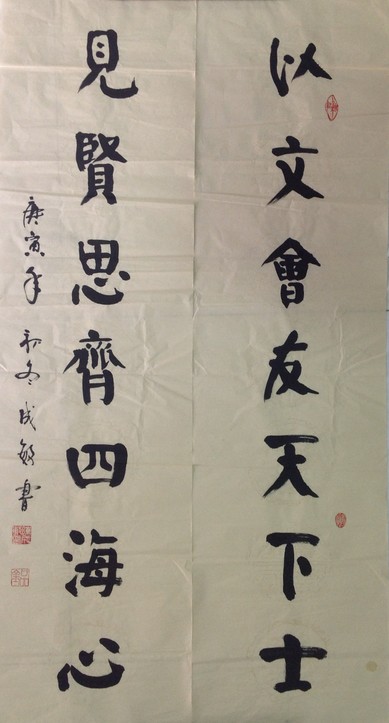 以文會友天下士
見賢思齊四海心
庚寅年初冬成敏書